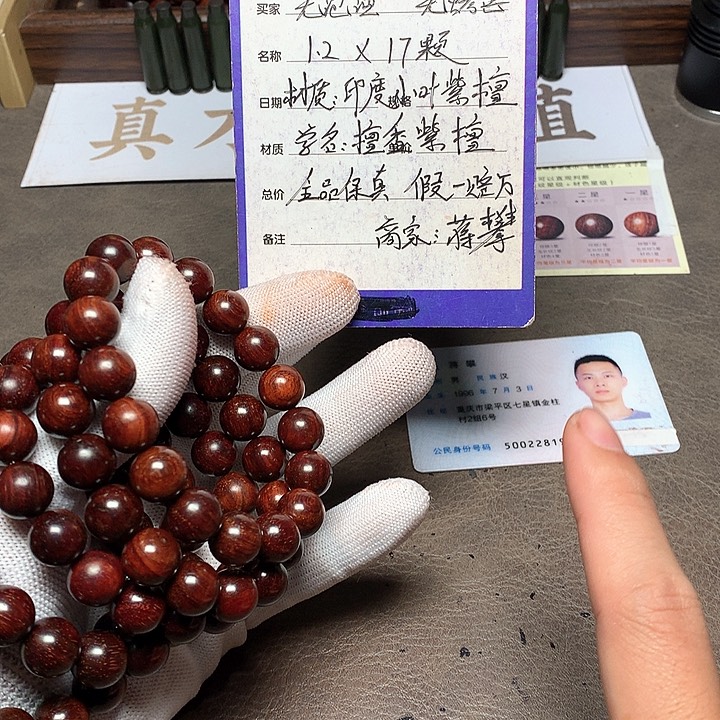 买家
名称 1.2 X 17颗
日期 材质：印度小叶紫檀
材质 学名：檀香紫檀
总价 全品保真 假一赔万
备注 商家：蒋攀
真 植
可以直观判断
二星 一星
蒋攀
男 民族 汉
1996 年 7 月 3 日
重庆市梁平区七星镇金柱
村2组6号
公民身份号码 5002281